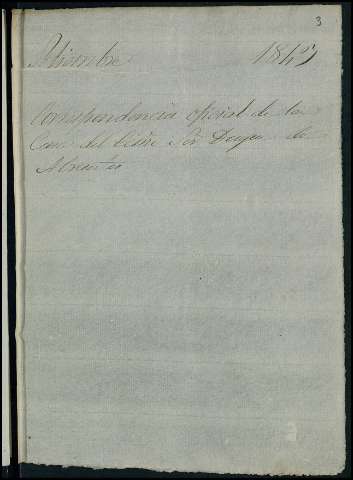 3
Diciembre 184
Correspondencia oficial de la
Casa del Exmo Sor Duque de
Abrantes